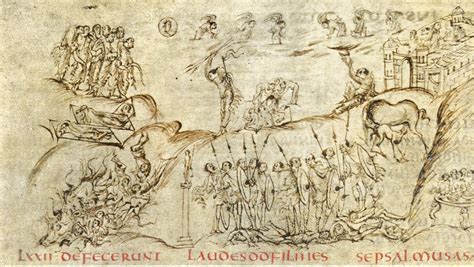 LXXII DEFECERUNT LAUDESDDFILIIIES SEPSALMUSAS